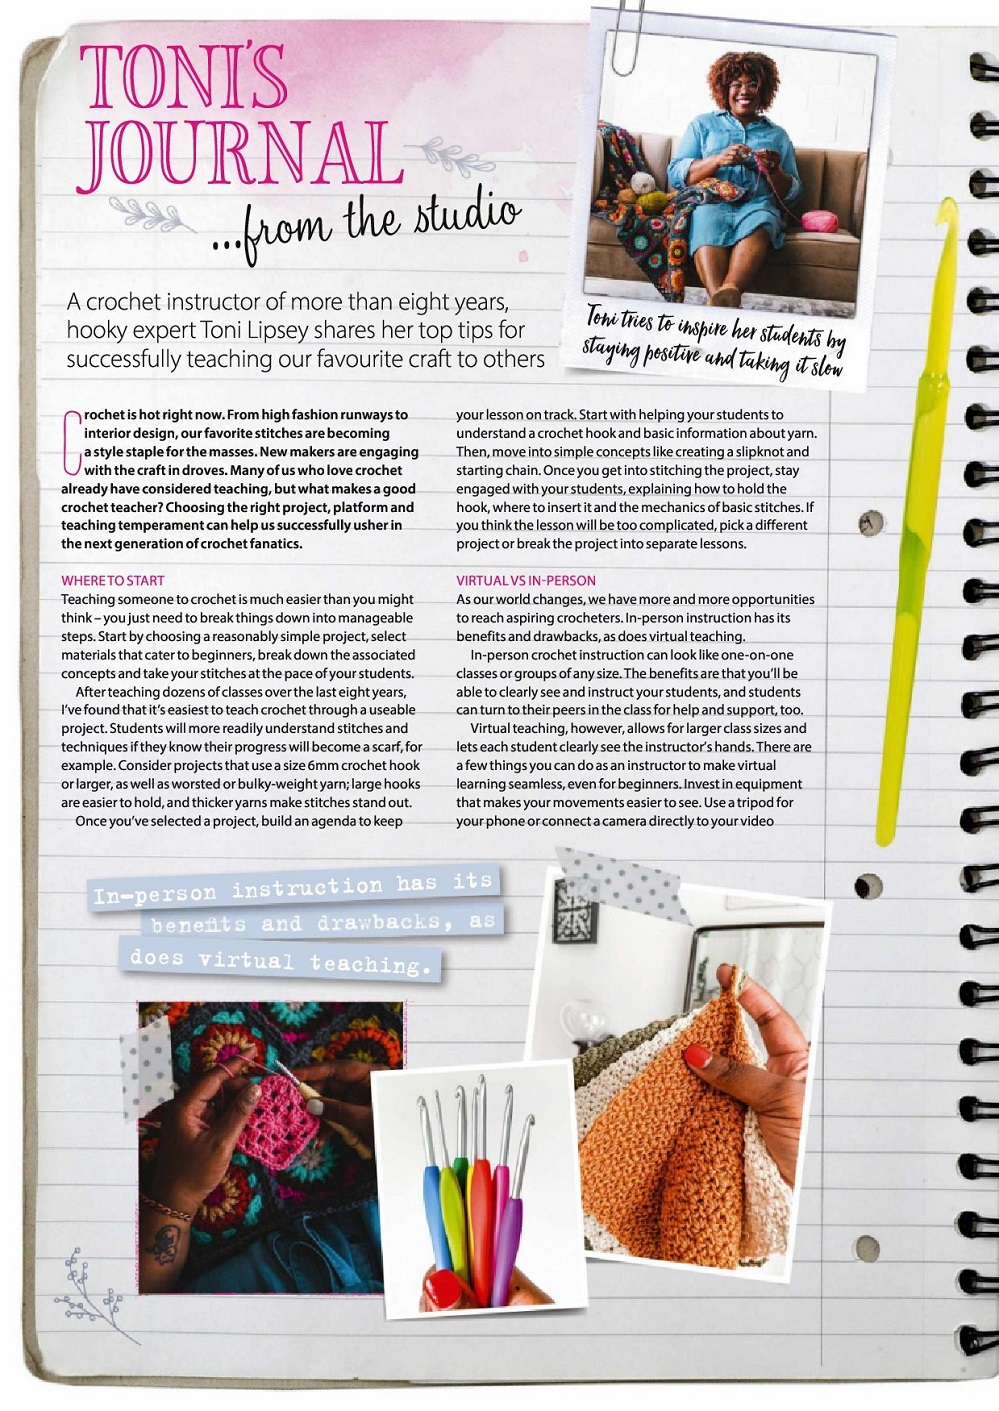 TONI'S
JOURNAL
...from the studio
A crochet instructor of more than eight years,
hooky expert Toni Lipsey shares her top tips for
successfully teaching our favourite craft to others
Toni tries to inspire her students by
staying positive and taking it slow
Crochet is hot right now. From high fashion runways to
interior design, our favorite stitches are becoming
a style staple for the masses. New makers are engaging
with the craft in droves. Many of us who love crochet
already have considered teaching, but what makes a good
crochet teacher? Choosing the right project, platform and
teaching temperament can help us successfully usher in
the next generation of crochet fanatics.
WHERE TO START
Teaching someone to crochet is much easier than you might
think – you just need to break things down into manageable
steps. Start by choosing a reasonably simple project, select
materials that cater to beginners, break down the associated
concepts and take your stitches at the pace of your students.
After teaching dozens of classes over the last eight years,
I've found that it's easiest to teach crochet through a useable
project. Students will more readily understand stitches and
techniques if they know their progress will become a scarf, for
example. Consider projects that use a size 6mm crochet hook
or larger, as well as worsted or bulky-weight yarn; large hooks
are easier to hold, and thicker yarns make stitches stand out.
Once you've selected a project, build an agenda to keep
your lesson on track. Start with helping your students to
understand a crochet hook and basic information about yarn.
Then, move into simple concepts like creating a slipknot and
starting chain. Once you get into stitching the project, stay
engaged with your students, explaining how to hold the
hook, where to insert it and the mechanics of basic stitches. If
you think the lesson will be too complicated, pick a different
project or break the project into separate lessons.
VIRTUAL VS IN-PERSON
As our world changes, we have more and more opportunities
to reach aspiring crocheters. In-person instruction has its
benefits and drawbacks, as does virtual teaching.
In-person crochet instruction can look like one-on-one
classes or groups of any size. The benefits are that you'll be
able to clearly see and instruct your students, and students
can turn to their peers in the class for help and support, too.
Virtual teaching, however, allows for larger class sizes and
lets each student clearly see the instructor's hands. There are
a few things you can do as an instructor to make virtual
learning seamless, even for beginners. Invest in equipment
that makes your movements easier to see. Use a tripod for
your phone or connect a camera directly to your video
In-person instruction has its
benefits and drawbacks, as
does virtual teaching.